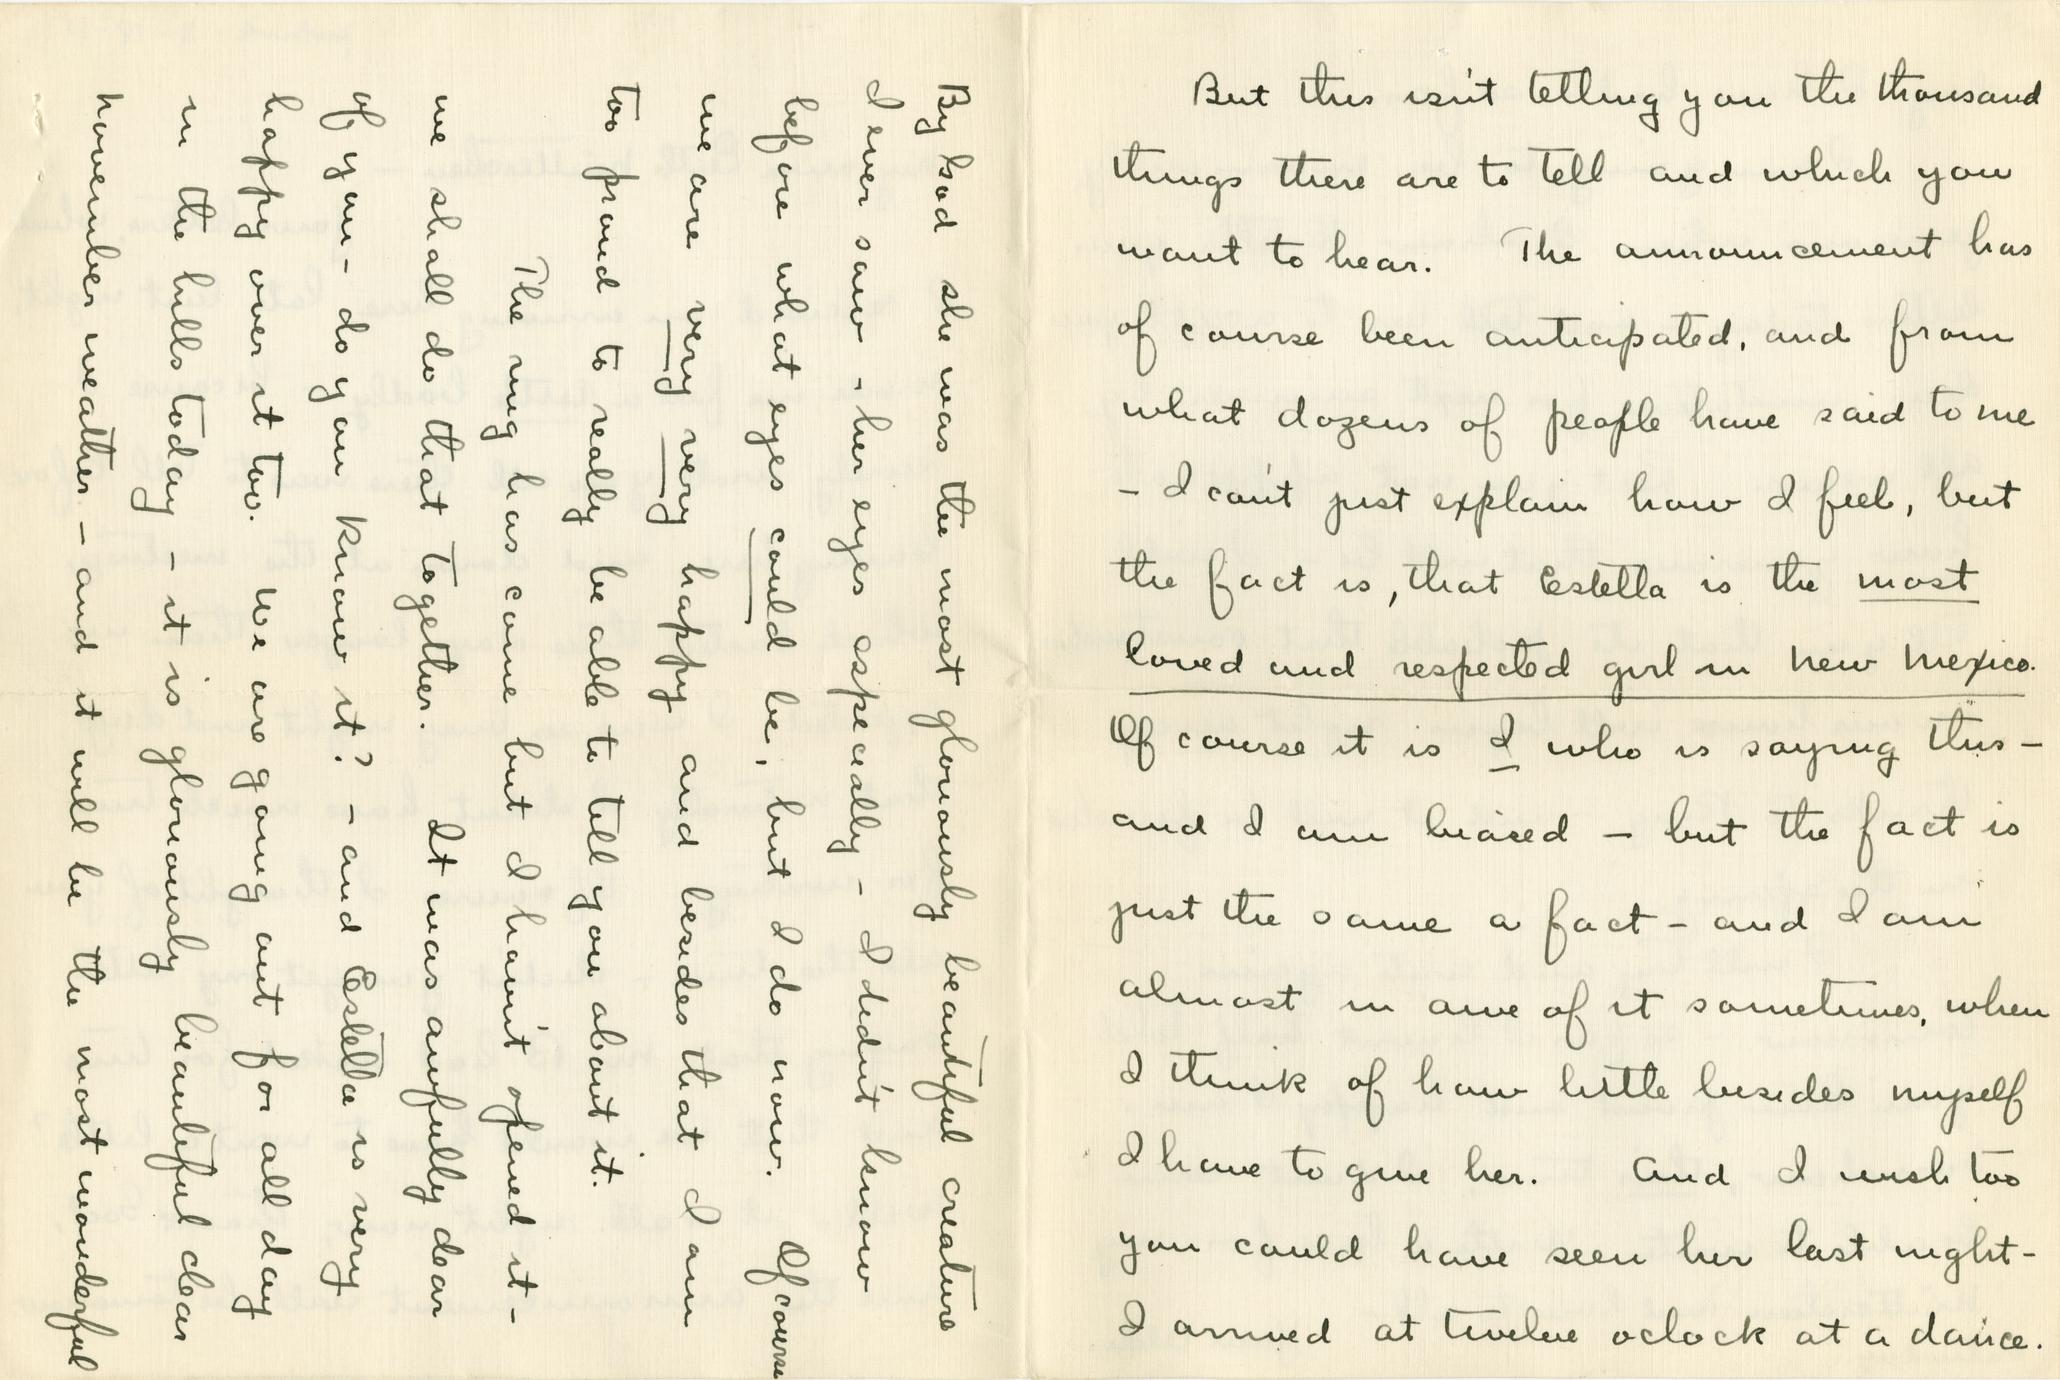 But this isn't telling you the thousand
things there are to tell and which you
want to hear. The announcement has
of course been anticipated, and from
what dozens of people have said to me
- I can't just explain how I feel, but
the fact is, that Estella is the most
loved and respected girl in New Mexico.
Of course it is I who is saying this -
and I am biased - but the fact is
just the same a fact - and I am
almost in awe of it sometimes, when
I think of how little besides myself
I have to give her. And I wish too
you could have seen her last night -
I arrived at twelve oclock at a dance.
By God she was the most gloriously beautiful creature
I ever saw - her eyes especially - I didn't know
before what eyes could be, but I do now. Of course
we are very very happy and besides that I am
too proud to really be able to tell you about it.
The ring has come but I havn't opened it -
we shall do that together. It was awfully dear
of you - do you know it? - and Estella is very
happy over it too. We are going out for all day
in the hills today - it is gloriously beautiful clear
November weather - and it will be the most wonderful